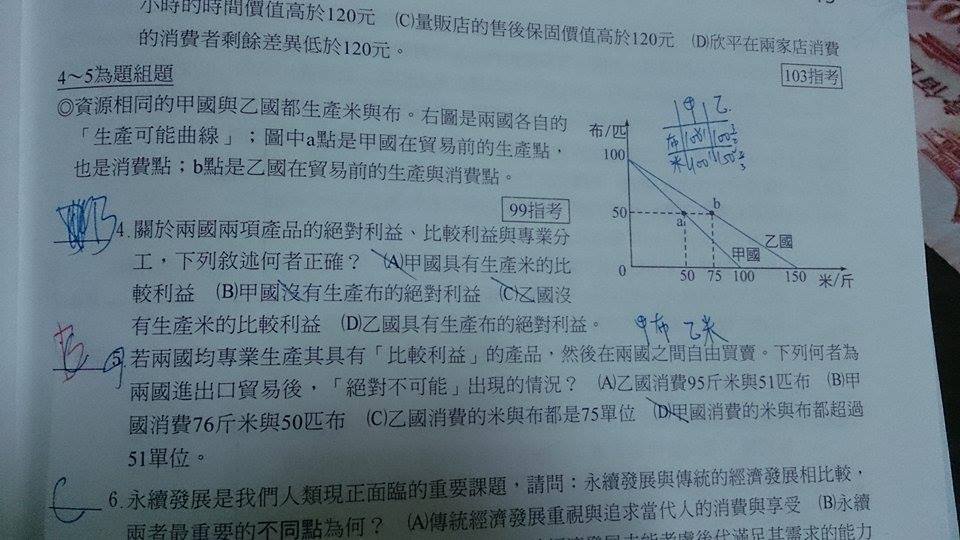 小時的時間價值高於120元 (C)量販店的售後保固價值高於120元 (D)欣平在兩家店消費
的消費者剩餘差異低於120元。
103指考
4～5為題組題
◎資源相同的甲國與乙國都生產米與布。右圖是兩國各自的
「生產可能曲線」；圖中a點是甲國在貿易前的生產點，
也是消費點；b點是乙國在貿易前的生產與消費點。
99指考
甲 乙
布
米
布/匹
100
50
0
a
b
甲國
乙國
50 75 100 150 米/斤
B
4.關於兩國兩項產品的絕對利益、比較利益與專業分
工，下列敘述何者正確？ (A)甲國具有生產米的比
較利益 (B)甲國沒有生產布的絕對利益 (C)乙國沒
有生產米的比較利益 (D)乙國具有生產布的絕對利益。
甲布 乙米
B
5.若兩國均專業生產其具有「比較利益」的產品，然後在兩國之間自由買賣。下列何者為
兩國進出口貿易後，「絕對不可能」出現的情況？ (A)乙國消費95斤米與51匹布 (B)甲
國消費76斤米與50匹布 (C)乙國消費的米與布都是75單位 (D)甲國消費的米與布都超過
51單位。
C
6.永續發展是我們人類現正面臨的重要課題，請問：永續發展與傳統的經濟發展相比較，
兩者最重要的不同點為何？ (A)傳統經濟發展重視與追求當代人的消費與享受 (B)永續